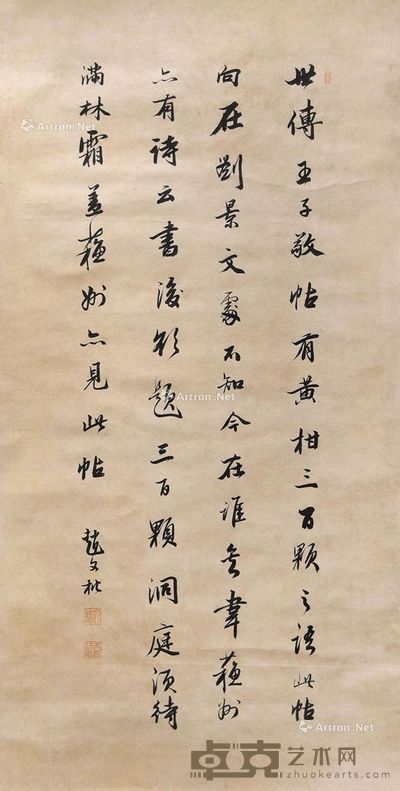 世傳王子敬帖有黃柑三百顆之語此帖
向在劉景文處不知今在誰韋蘇州
亦有詩云書後欲題三百顆洞庭須待
滿林霜蓋蘇州亦見此帖
趙文楷
Artron.Net
Artron.Net
Artron.Net
Artron.Net
Artron.Net
卓克艺术网
zhuokearts.com